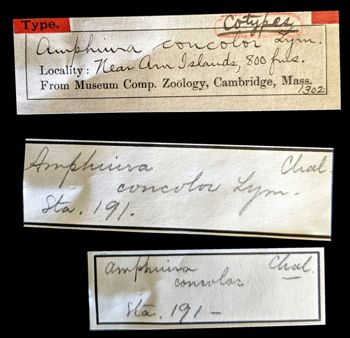 Type. Cotypes
Amphiura concolor Lym.
Locality: Near Arn Islands, 800 fms.
From Museum Comp. Zoölogy, Cambridge, Mass.
1302
Amphiura Chal.
concolor Lym.
Sta. 191.
Amphiura Chal.
concolor
Sta. 191–